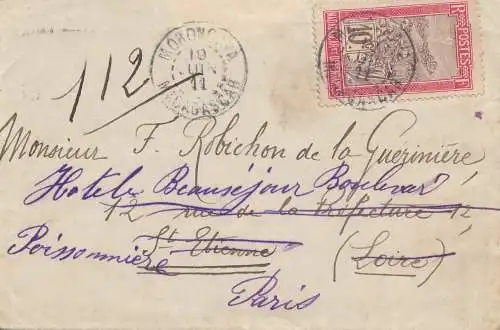 MORONDAVA
19
JUIN
11
MADAGASCAR
POSTES
10
112
Monsieur F. Robichon de la Guérinière
Hotel Beauséjour Boulevard
12 rue de la Préfecture 12
Poissonnière St Etienne (Loire)
Paris